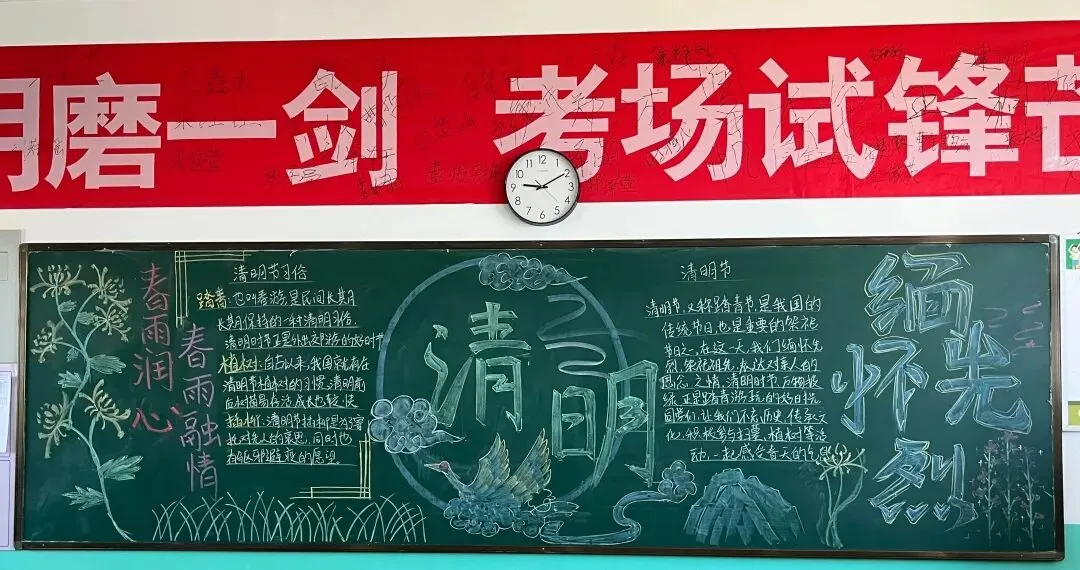 磨一剑 考场试锋
12
1
2
3
4
5
6
7
8
9
10
11
春雨润心
春雨融情
清明节习俗
踏青:也叫春游是民间长期
长期保持的一种清明习俗.
清明时节正是外出郊游的好时节
植树:自古以来,我国就有在
清明节植树的习惯.清明前
后树苗易存活,成长也较快
插柳:清明节插柳是为
对先人的哀思,同时也
有驱邪避疫的愿望。
清明
清明节
清明节,又称踏青节是我国的
传统节日,也是重要的祭祀
节日之一,在这一天,我们缅怀先
烈,祭祀祖先,表达对亲人的
思念之情,清明时节,万物
正是踏青游玩的好时机
同学们,让我们不忘历史,传承文
化,积极参与扫墓、植树等活
动,一起感受春天的气
缅怀先烈